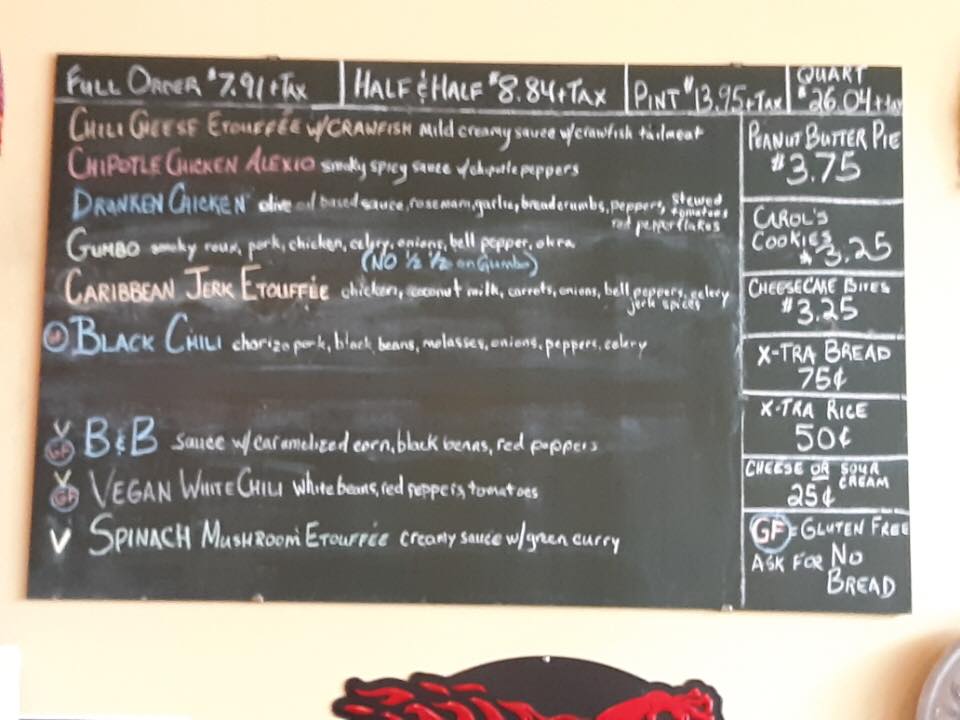 FULL ORDER $7.91+TAX
HALF & HALF $8.84+TAX
PINT $13.95+TAX
QUART
$26.04+tax
CHILI CHEESE ETOUFFÉE W/CRAWFISH Mild creamy sauce w/crawfish tailmeat
CHIPOTLE CHICKEN ALEXIO smoky spicy sauce w/chipotle peppers
DRANKEN CHICKEN olive oil based sauce, rosemary, garlic, breadcrumbs, peppers, stewed
tomatoes
red pepper flakes
GUMBO smoky roux, pork, chicken, celery, onions, bell pepper, okra
(NO ½ ½ on Gumbo)
CARIBBEAN JERK ETOUFFÉE chicken, coconut milk, carrots, onions, bell peppers, celery
jerk spices
GF BLACK CHILI chorizo pork, black beans, molasses, onions, peppers, celery
V
GF B&B Sauce w/caramelized corn, black benas, red peppers
V
GF VEGAN WHITE CHILI white beans, red peppers, tomatoes
V SPINACH MUSHROOM ETOUFFÉE creamy sauce w/green curry
PEANUT BUTTER PIE
$3.75
CAROL'S
COOKIES
$3.25
CHEESECAKE BITES
$3.25
X-TRA BREAD
75¢
X-TRA RICE
50¢
CHEESE OR SOUR
CREAM
25¢
GF = GLUTEN FREE
ASK FOR NO
BREAD